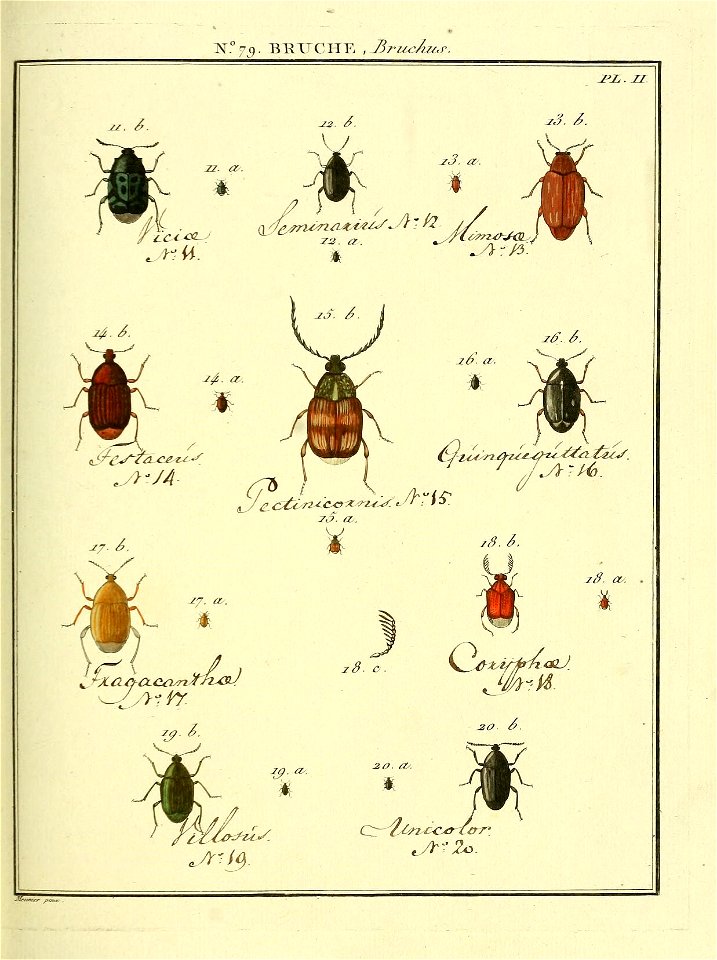 N.º 79. BRUCHE, Bruchus.
PL. II
11. b.
11. a.
Viciæ.
Nº 11.
12. b.
Seminariús Nº 12
12. a.
13. a.
13. b.
Mimosæ
Nº 13.
14. b.
14. a.
Testaceús.
Nº 14.
15. b.
Pectinicornis. Nº 15.
15. a.
16. a.
16. b.
Qúinqúegúttatús.
Nº 16.
17. b.
17. a.
Tragacanthæ
Nº 17.
18. b.
18. a.
18. c.
Coryphæ.
Nº 18.
19. b.
19. a.
Villosús.
Nº 19.
20. a.
20. b.
Unicolor.
Nº 20.
Meunier pinx.